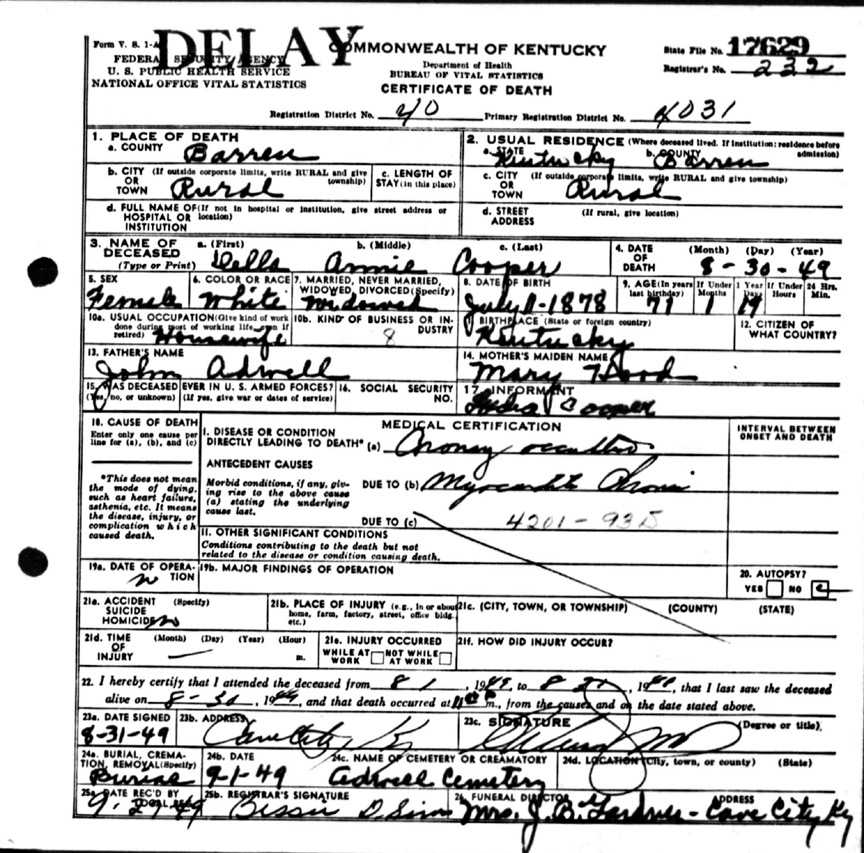 DELAY
Form V. S. 1-A
FEDERAL SECURITY AGENCY
U. S. PUBLIC HEALTH SERVICE
NATIONAL OFFICE VITAL STATISTICS
COMMONWEALTH OF KENTUCKY
Department of Health
BUREAU OF VITAL STATISTICS
CERTIFICATE OF DEATH
State File No. 17629
Registrar's No. 232
Registration District No. 40 Primary Registration District No. 4031
1. PLACE OF DEATH
a. COUNTY Barren
2. USUAL RESIDENCE (Where deceased lived. If institution: residence before admission)
a. STATE Kentucky b. COUNTY Barren
b. CITY (If outside corporate limits, write RURAL and give township)
OR TOWN Rural
c. LENGTH OF STAY (in this place)
c. CITY (If outside corporate limits, write RURAL and give township)
OR TOWN Rural
d. FULL NAME OF (If not in hospital or institution, give street address or location)
HOSPITAL OR INSTITUTION
d. STREET ADDRESS (If rural, give location)
3. NAME OF DECEASED (Type or Print)
a. (First) b. (Middle) c. (Last)
Della Annie Cooper
4. DATE OF DEATH (Month) (Day) (Year)
8-30-49
5. SEX
Female
6. COLOR OR RACE
White
7. MARRIED, NEVER MARRIED, WIDOWED, DIVORCED (Specify)
Widowed
8. DATE OF BIRTH
July 11-1878
9. AGE (In years last birthday) If Under 1 Year Months Days If Under 24 Hrs. Hours Min.
71 1 19
10a. USUAL OCCUPATION (Give kind of work done during most of working life, even if retired)
Housewife
10b. KIND OF BUSINESS OR INDUSTRY
8
11. BIRTHPLACE (State or foreign country)
Kentucky
12. CITIZEN OF WHAT COUNTRY?
13. FATHER'S NAME
John Adwell
14. MOTHER'S MAIDEN NAME
Mary Hood
15. WAS DECEASED EVER IN U. S. ARMED FORCES?
(Yes, no, or unknown) (If yes, give war or dates of service)
16. SOCIAL SECURITY NO.
17. INFORMANT
Cooper
18. CAUSE OF DEATH
Enter only one cause per line for (a), (b), and (c)
*This does not mean the mode of dying, such as heart failure, asthenia, etc. It means the disease, injury, or complication which caused death.
MEDICAL CERTIFICATION
INTERVAL BETWEEN ONSET AND DEATH
I. DISEASE OR CONDITION DIRECTLY LEADING TO DEATH* (a)
ANTECEDENT CAUSES
Morbid conditions, if any, giving rise to the above cause (a) stating the underlying cause last.
DUE TO (b)
DUE TO (c)
4201-93D
II. OTHER SIGNIFICANT CONDITIONS
Conditions contributing to the death but not related to the disease or condition causing death.
19a. DATE OF OPERATION
19b. MAJOR FINDINGS OF OPERATION
20. AUTOPSY?
YES NO
21a. ACCIDENT SUICIDE HOMICIDE (Specify)
21b. PLACE OF INJURY (e.g., in or about home, farm, factory, street, office bldg. etc.)
21c. (CITY, TOWN, OR TOWNSHIP) (COUNTY) (STATE)
21d. TIME OF INJURY (Month) (Day) (Year) (Hour) m.
21e. INJURY OCCURRED
WHILE AT WORK NOT WHILE AT WORK
21f. HOW DID INJURY OCCUR?
22. I hereby certify that I attended the deceased from 8 1, 1949, to 8, 19, that I last saw the deceased
alive on 8-30, 1949, and that death occurred at m., from the causes and on the date stated above.
23a. DATE SIGNED
8-31-49
23b. ADDRESS
Cave City Ky
23c. SIGNATURE (Degree or title)
24a. BURIAL, CREMATION, REMOVAL (Specify)
Burial
24b. DATE
9-1-49
24c. NAME OF CEMETERY OR CREAMATORY
Adwell Cemetery
24d. LOCATION (City, town, or county) (State)
25a. DATE REC'D BY LOCAL REG.
9-27-49
25b. REGISTRAR'S SIGNATURE
Bessie D Sims
26. FUNERAL DIRECTOR ADDRESS
Mrs. J. B. Gardner - Cave City Ky